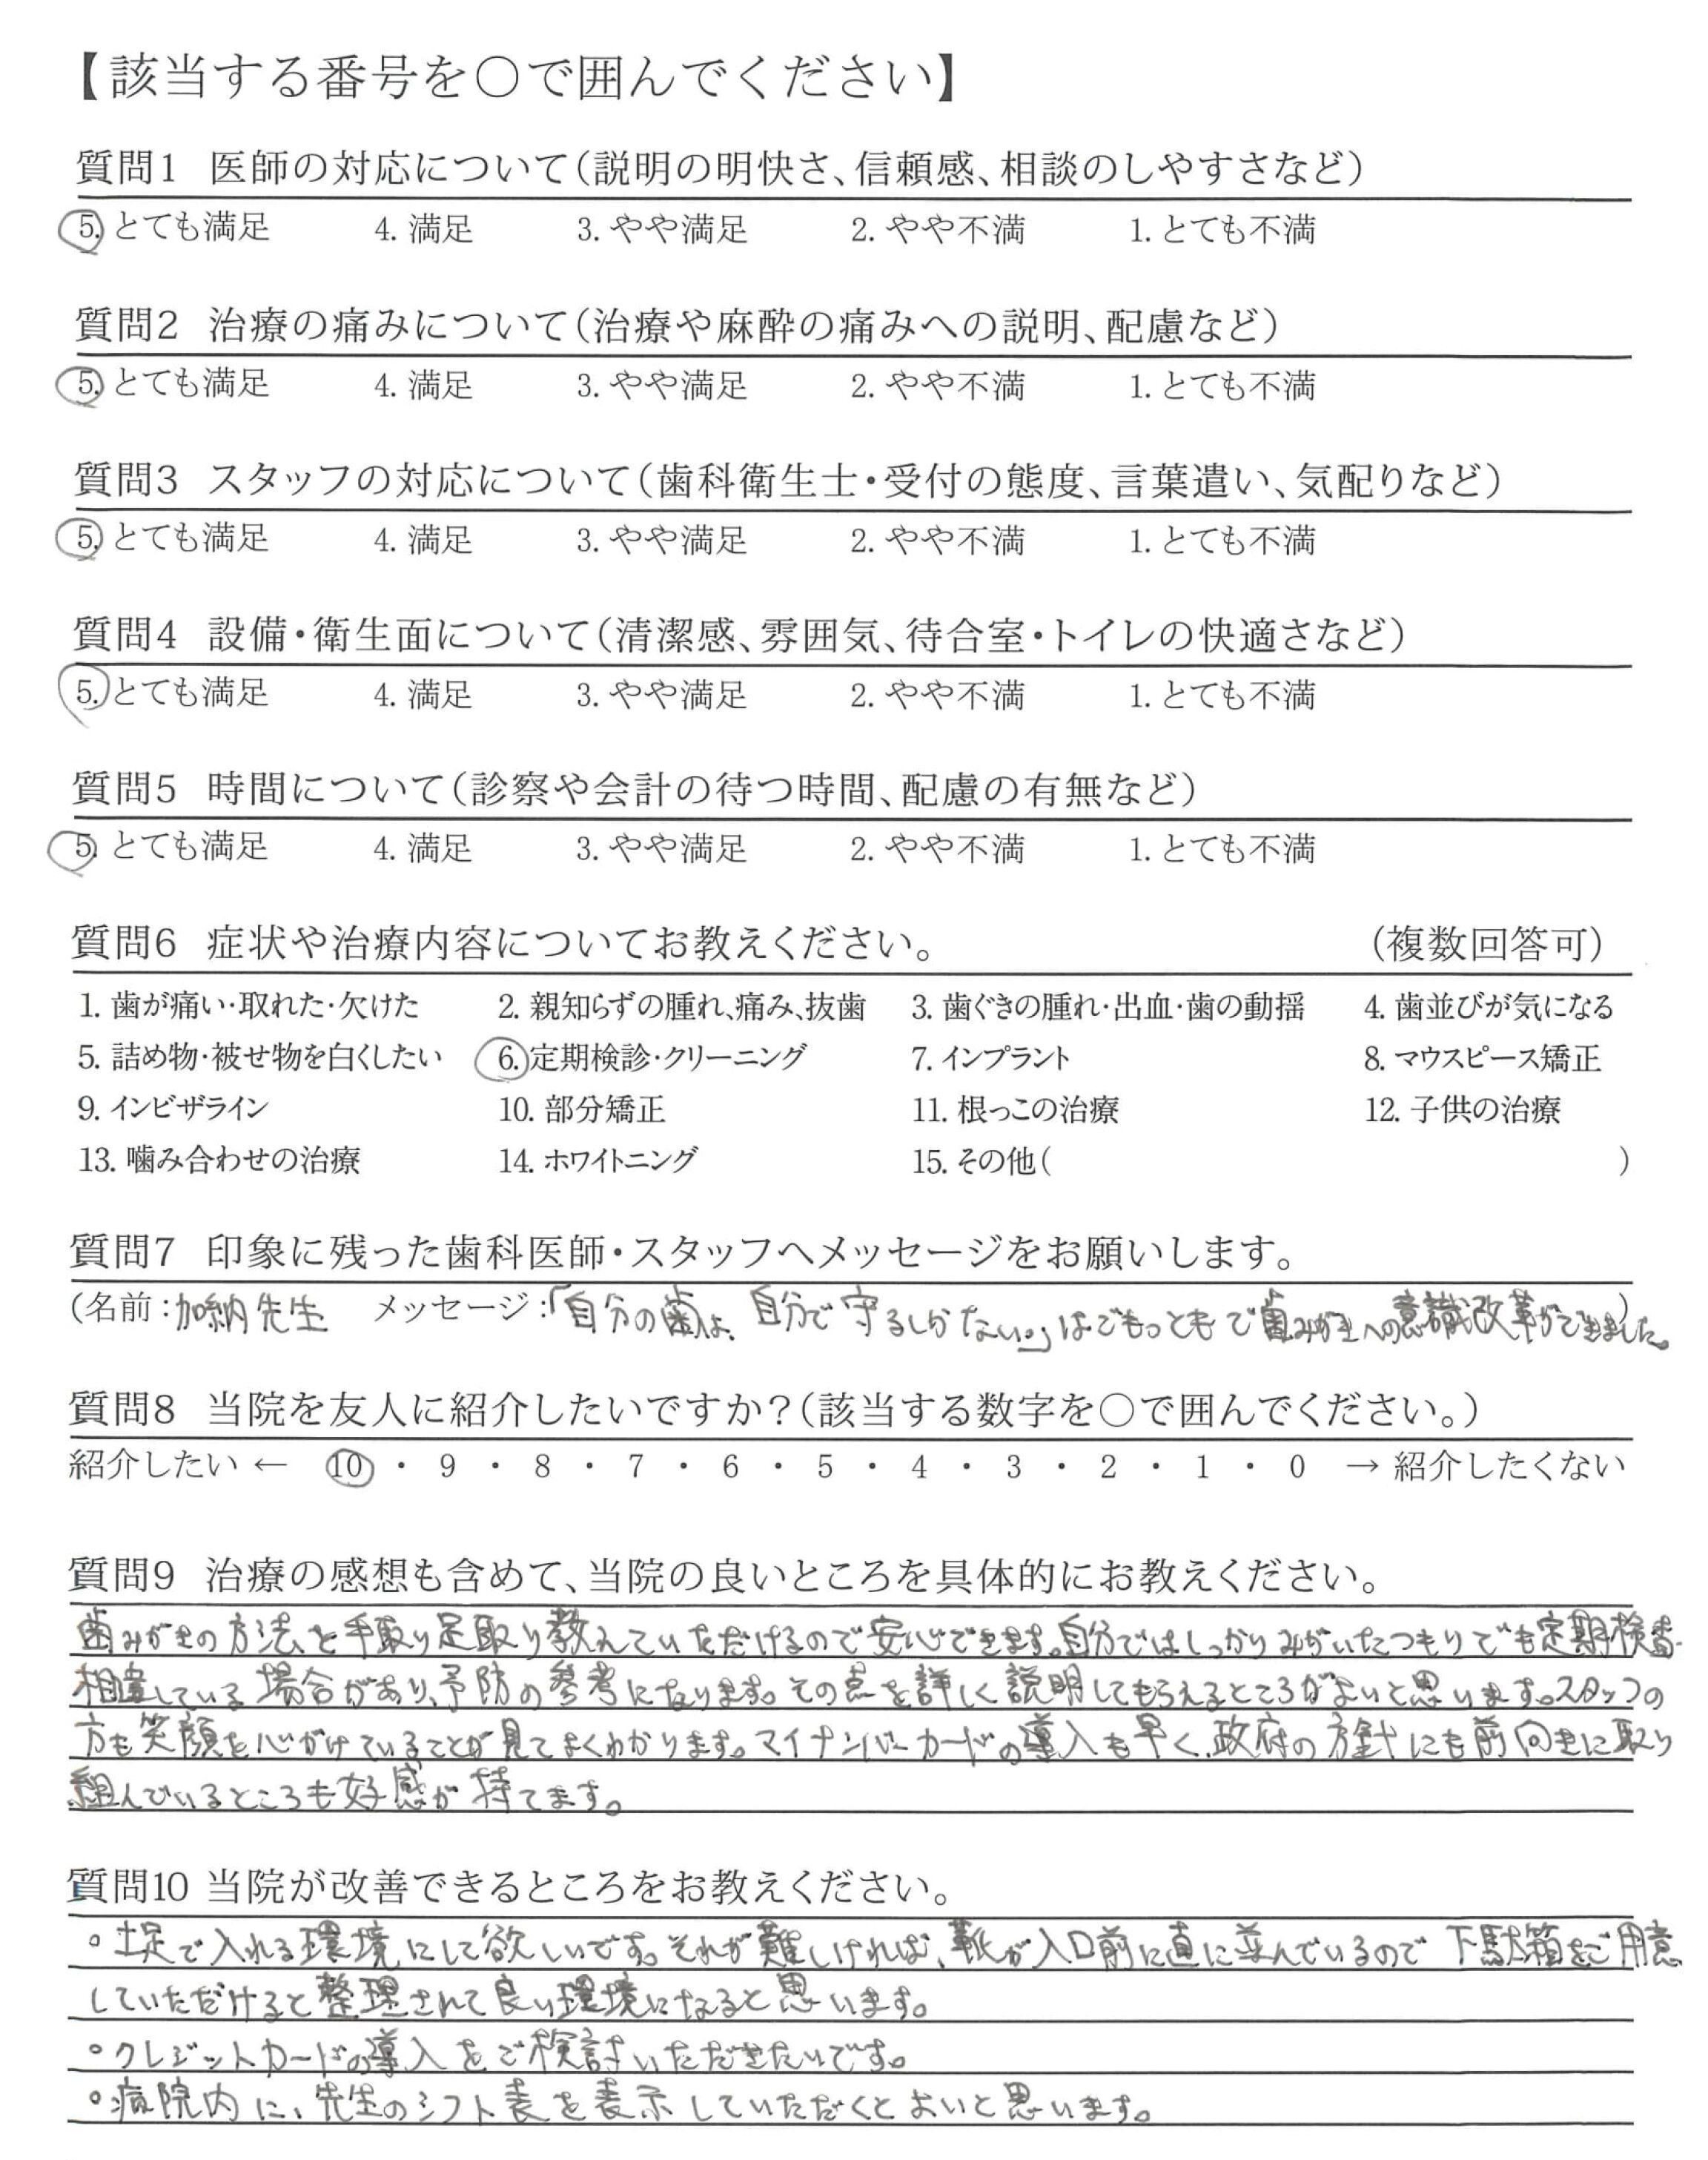 【該当する番号を○で囲んでください】
質問1 医師の対応について(説明の明快さ、信頼感、相談のしやすさなど)
5. とても満足 4. 満足 3. やや満足 2. やや不満 1. とても不満
質問2 治療の痛みについて(治療や麻酔の痛みへの説明、配慮など)
5. とても満足 4. 満足 3. やや満足 2. やや不満 1. とても不満
質問3 スタッフの対応について(歯科衛生士・受付の態度、言葉遣い、気配りなど)
5. とても満足 4. 満足 3. やや満足 2. やや不満 1. とても不満
質問4 設備・衛生面について(清潔感、雰囲気、待合室・トイレの快適さなど)
5. とても満足 4. 満足 3. やや満足 2. やや不満 1. とても不満
質問5 時間について(診察や会計の待つ時間、配慮の有無など)
5. とても満足 4. 満足 3. やや満足 2. やや不満 1. とても不満
質問6 症状や治療内容についてお教えください。 (複数回答可)
1. 歯が痛い・取れた・欠けた 2. 親知らずの腫れ、痛み、抜歯 3. 歯ぐきの腫れ・出血・歯の動揺 4. 歯並びが気になる
5. 詰め物・被せ物を白くしたい 6. 定期検診・クリーニング 7. インプラント 8. マウスピース矯正
9. インビザライン 10. 部分矯正 11. 根っこの治療 12. 子供の治療
13. 噛み合わせの治療 14. ホワイトニング 15. その他( )
質問7 印象に残った歯科医師・スタッフへメッセージをお願いします。
(名前:加納先生 メッセージ:「自分の歯は、自分で守るしかない。」はごもっともで歯みがきへの意識改革ができました。)
質問8 当院を友人に紹介したいですか?(該当する数字を○で囲んでください。)
紹介したい ← 10 ・ 9 ・ 8 ・ 7 ・ 6 ・ 5 ・ 4 ・ 3 ・ 2 ・ 1 ・ 0 → 紹介したくない
質問9 治療の感想も含めて、当院の良いところを具体的にお教えください。
歯みがきの方法を手取り足取り教えていただけるので安心できます。自分ではしっかりみがいたつもりでも定期検査
相違している場合があり、予防の参考になります。その点を詳しく説明してもらえるところがよいと思います。スタッフの
方も笑顔を心がけていることが見てよくわかります。マイナンバーカードの導入も早く、政府の方針にも前向きに取り
組んでいるところも好感が持てます。
質問10 当院が改善できるところをお教えください。
○土足で入れる環境にして欲しいです。それが難しければ、靴が入口前に直に並んでいるので下駄箱をご用意
していただけると整理されて良い環境になると思います。
○クレジットカードの導入をご検討いただきたいです。
○病院内に、先生のシフト表を表示していただくとよいと思います。